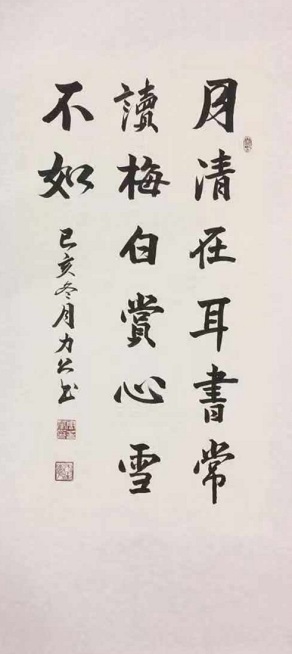 月清在耳書常
讀梅白賞心雪
不如
己亥冬月力公书